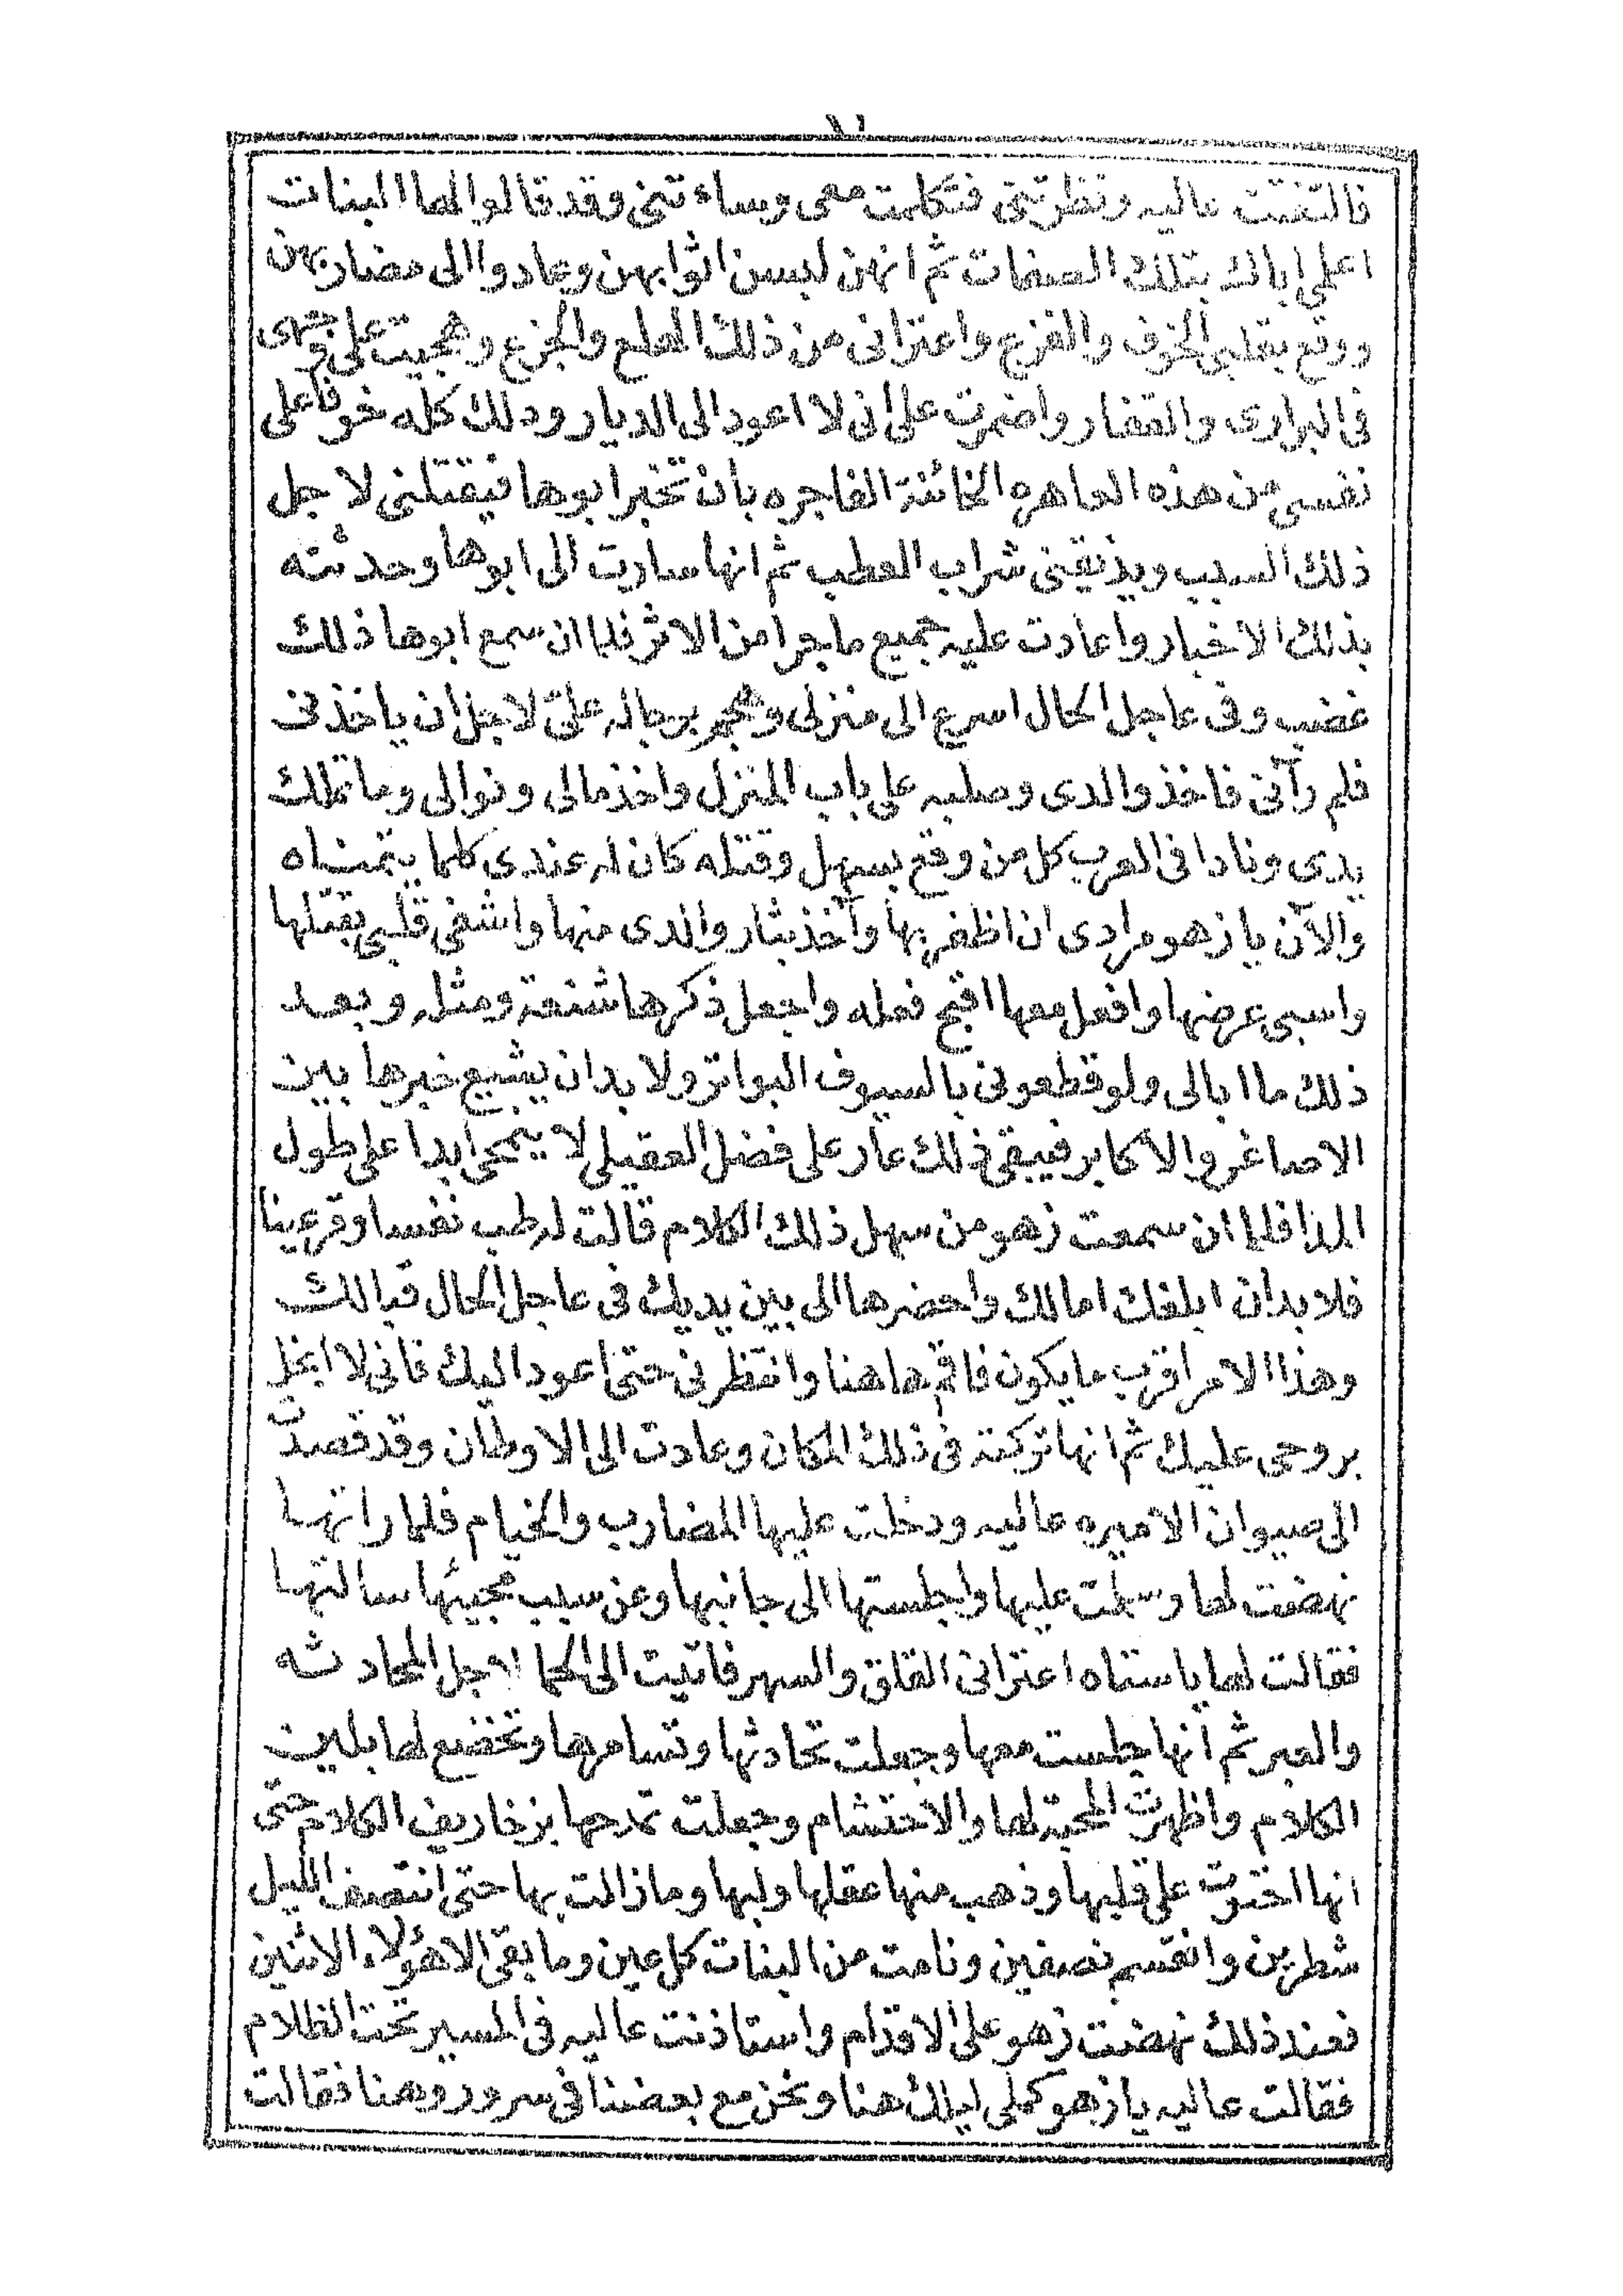 ١٠
فالتفتت عاليه ونظرتنى فتكلمت معى وساءتنى وقد قالوا لها البنات
اعلمى اباك بتلك الصفات ثم انهن لبسن اثوابهن وعادوا الى مضاربهن
ووقع بقلبى الخوف والفزع واعترانى من ذلك الهلع والجزع وهجيت على وجهى
فى البرارى والقفار واضمرت على انى لا اعود الى الديار وذلك كله خوفا على
نفسى من هذه العاهره الخائنة الفاجره بان تخبر ابوها فيقتلنى لاجل
ذلك السبب ويذيقنى شراب العطب ثم انها سارت الى ابوها وحدثته
بذلك الاخبار واعادت عليه جميع ما جرا من الاثر فلما ان سمع ابوها ذلك
غضب وفى عاجل الحال اسرع الى منزلى وهجم برجاله علىّ لاجل ان ياخذنى
فلم رآنى فاخذ والدى وصلبه على باب المنزل واخذ مالى ونوالى وما تملك
يدى ونادا فى العرب كل من وقع بسهل وقتله كان له عندى كلما يتمناه
والآن يا زهو مرادى ان اظفر بها وآخذ بثار والدى منها واشفى قلبى بقتلها
واسبى عرضها وافعل معها اقبح فعله واجعل ذكرها شنعة ومثله وبعد
ذلك ما ابالى ولو قطعونى بالسيوف البواتر ولا بد ان يشيع خبرها بين
الاصاغر والاكابر فيبقى ذلك عار على فضل العقيلى لا يمحى ابدا على طول
المدا فلما ان سمعت زهو من سهل ذلك الكلام قالت له طب نفسا وقر عينا
فلا بد ان ابلغك امالك واحضرها الى بين يديك فى عاجل الحال قبالك
وهذا الامر اقرب ما يكون فاقم هاهنا وانتظرنى حتى اعود اليك فانى لا ابخل
بروحى عليك ثم انها تركته فى ذلك المكان وعادت الى الاوطان وقد قصدت
الى صيوان الاميره عاليه ودخلت عليها المضارب والخيام فلما راتها
نهضت لها وسلمت عليها واجلستها الى جانبها وعن سبب مجيئها سالتها
فقالت لها يا ستاه اعترانى القلق والسهر فاتيت الى الحما لاجل المحادثه
والعبر ثم انها جلست معها وجعلت تحادثها وتسامرها وتخضع لها بلين
الكلام واظهرت المحبة لها والاحتشام وجعلت تمدحها بزخاريف الكلام حتى
انها احتوت على قلبها وذهب منها عقلها ولبها وما زالت بها حتى انتصف الليل
شطرين وانقسم نصفين ونامت من البنات كل عين وما بقى الا هؤلاء الاثنين
فعند ذلك نهضت زهو على الاقدام واستاذنت عاليه فى المسير تحت الظلام
فقالت عاليه يا زهو كملى ليلك هنا ونحن مع بعضنا فى سرور وهنا فقالت